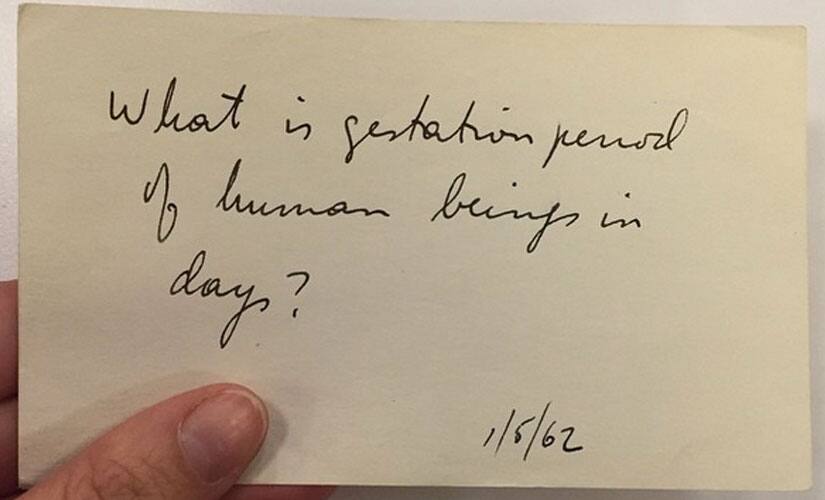 What is gestation period
of human beings in
days?
1/5/62